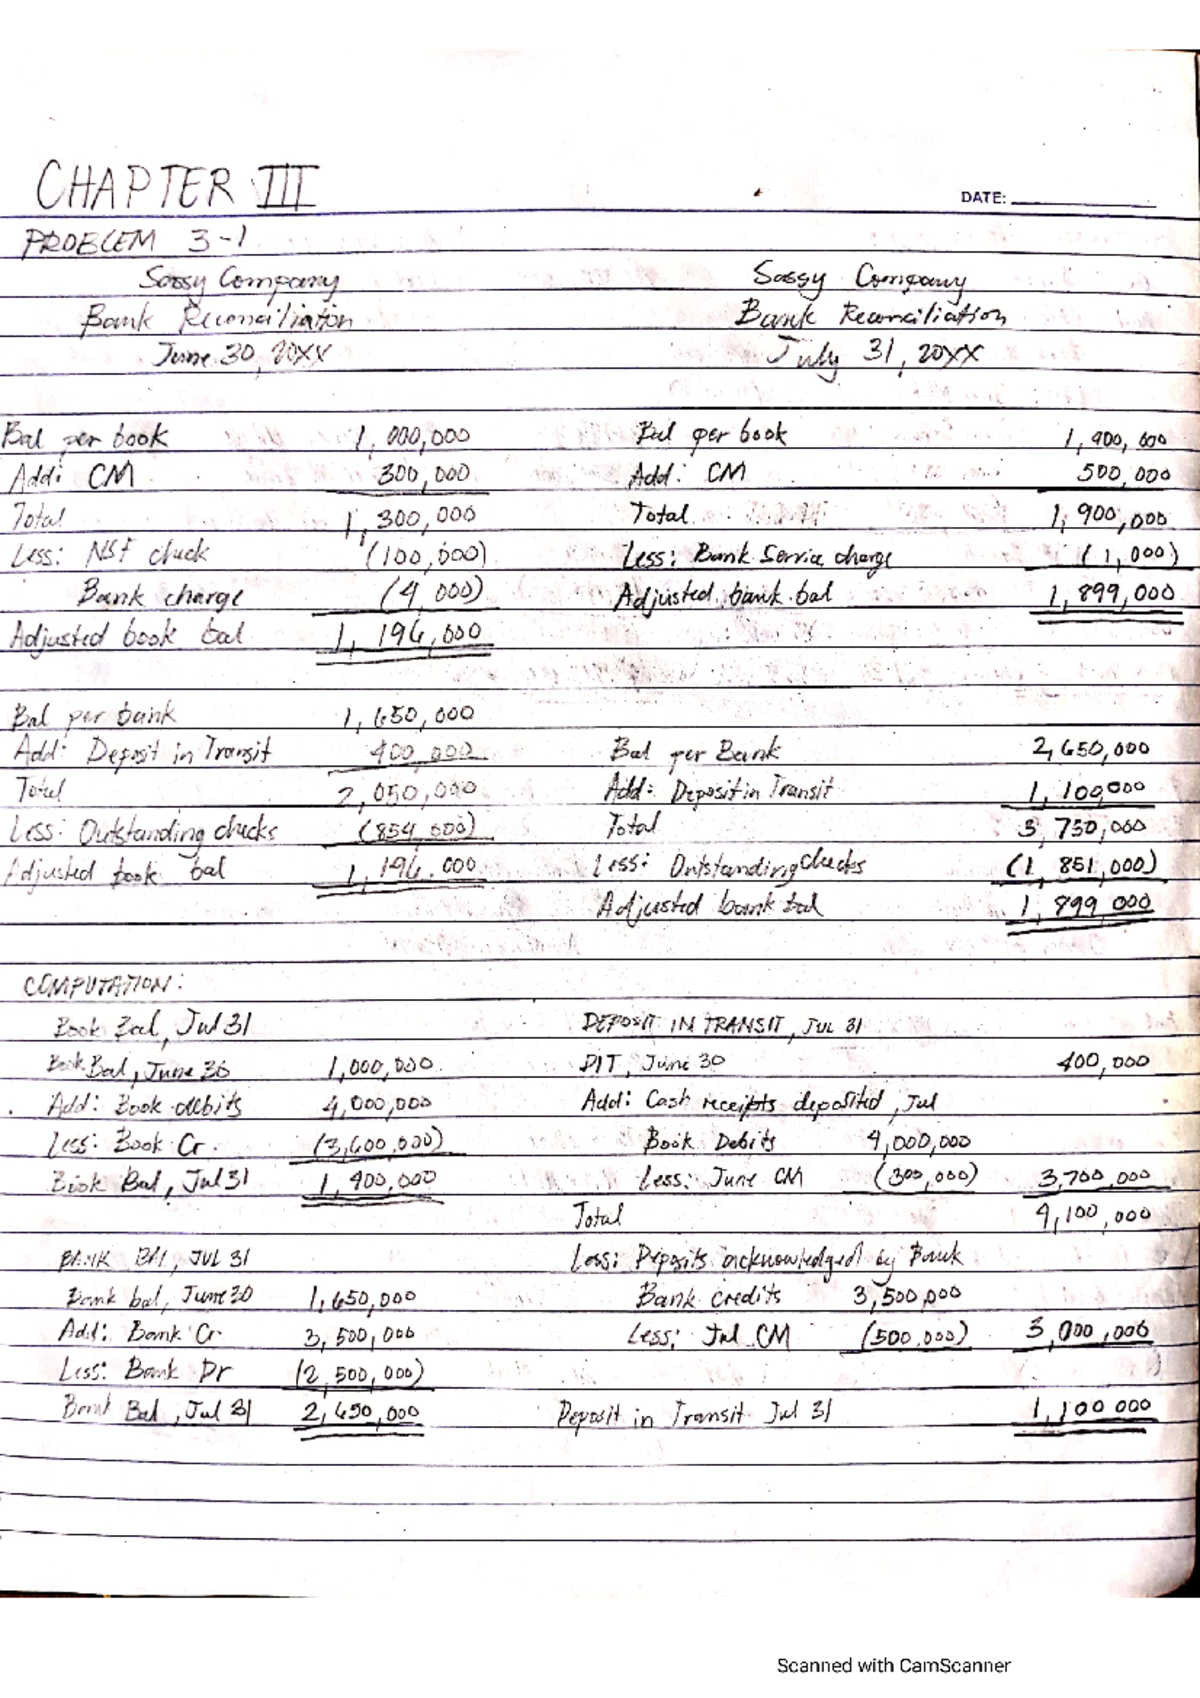 CHAPTER III
DATE:
PROBLEM 3-1
Sassy Company
Bank Reconciliation
June 30, 20XX
Sassy Company
Bank Reconciliation
July 31, 20XX
Bal per book 1,000,000
Add: CM 300,000
Total 1,300,000
Less: NSF check (100,000)
Bank charge (4,000)
Adjusted book bal 1,196,000
Bal per book 1,400,000
Add: CM 500,000
Total 1,900,000
Less: Bank Service charge (1,000)
Adjusted bank bal 1,899,000
Bal per bank 1,650,000
Add: Deposit in Transit 400,000
Total 2,050,000
Less: Outstanding checks (854,000)
Adjusted book bal 1,196,000
Bal per Bank 2,650,000
Add: Deposit in Transit 1,100,000
Total 3,750,000
Less: Outstanding checks (1,851,000)
Adjusted bank bal 1,899,000
COMPUTATION:
Book Bal, Jul 31
Book Bal, June 30 1,000,000
Add: Book debits 4,000,000
Less: Book Cr. (3,600,000)
Book Bal, Jul 31 1,400,000
BANK BAL, JUL 31
Bank bal, June 30 1,650,000
Add: Bank Cr 3,500,000
Less: Bank Dr (2,500,000)
Bank Bal, Jul 31 2,650,000
DEPOSIT IN TRANSIT, JUL 31
DIT, June 30 400,000
Add: Cash receipts deposited, Jul
Book Debits 4,000,000
Less: June CM (300,000) 3,700,000
Total 4,100,000
Less: Deposits acknowledged by Bank
Bank credits 3,500,000
Less: Jul CM (500,000) 3,000,000
Deposit in Transit Jul 31 1,100,000
Scanned with CamScanner